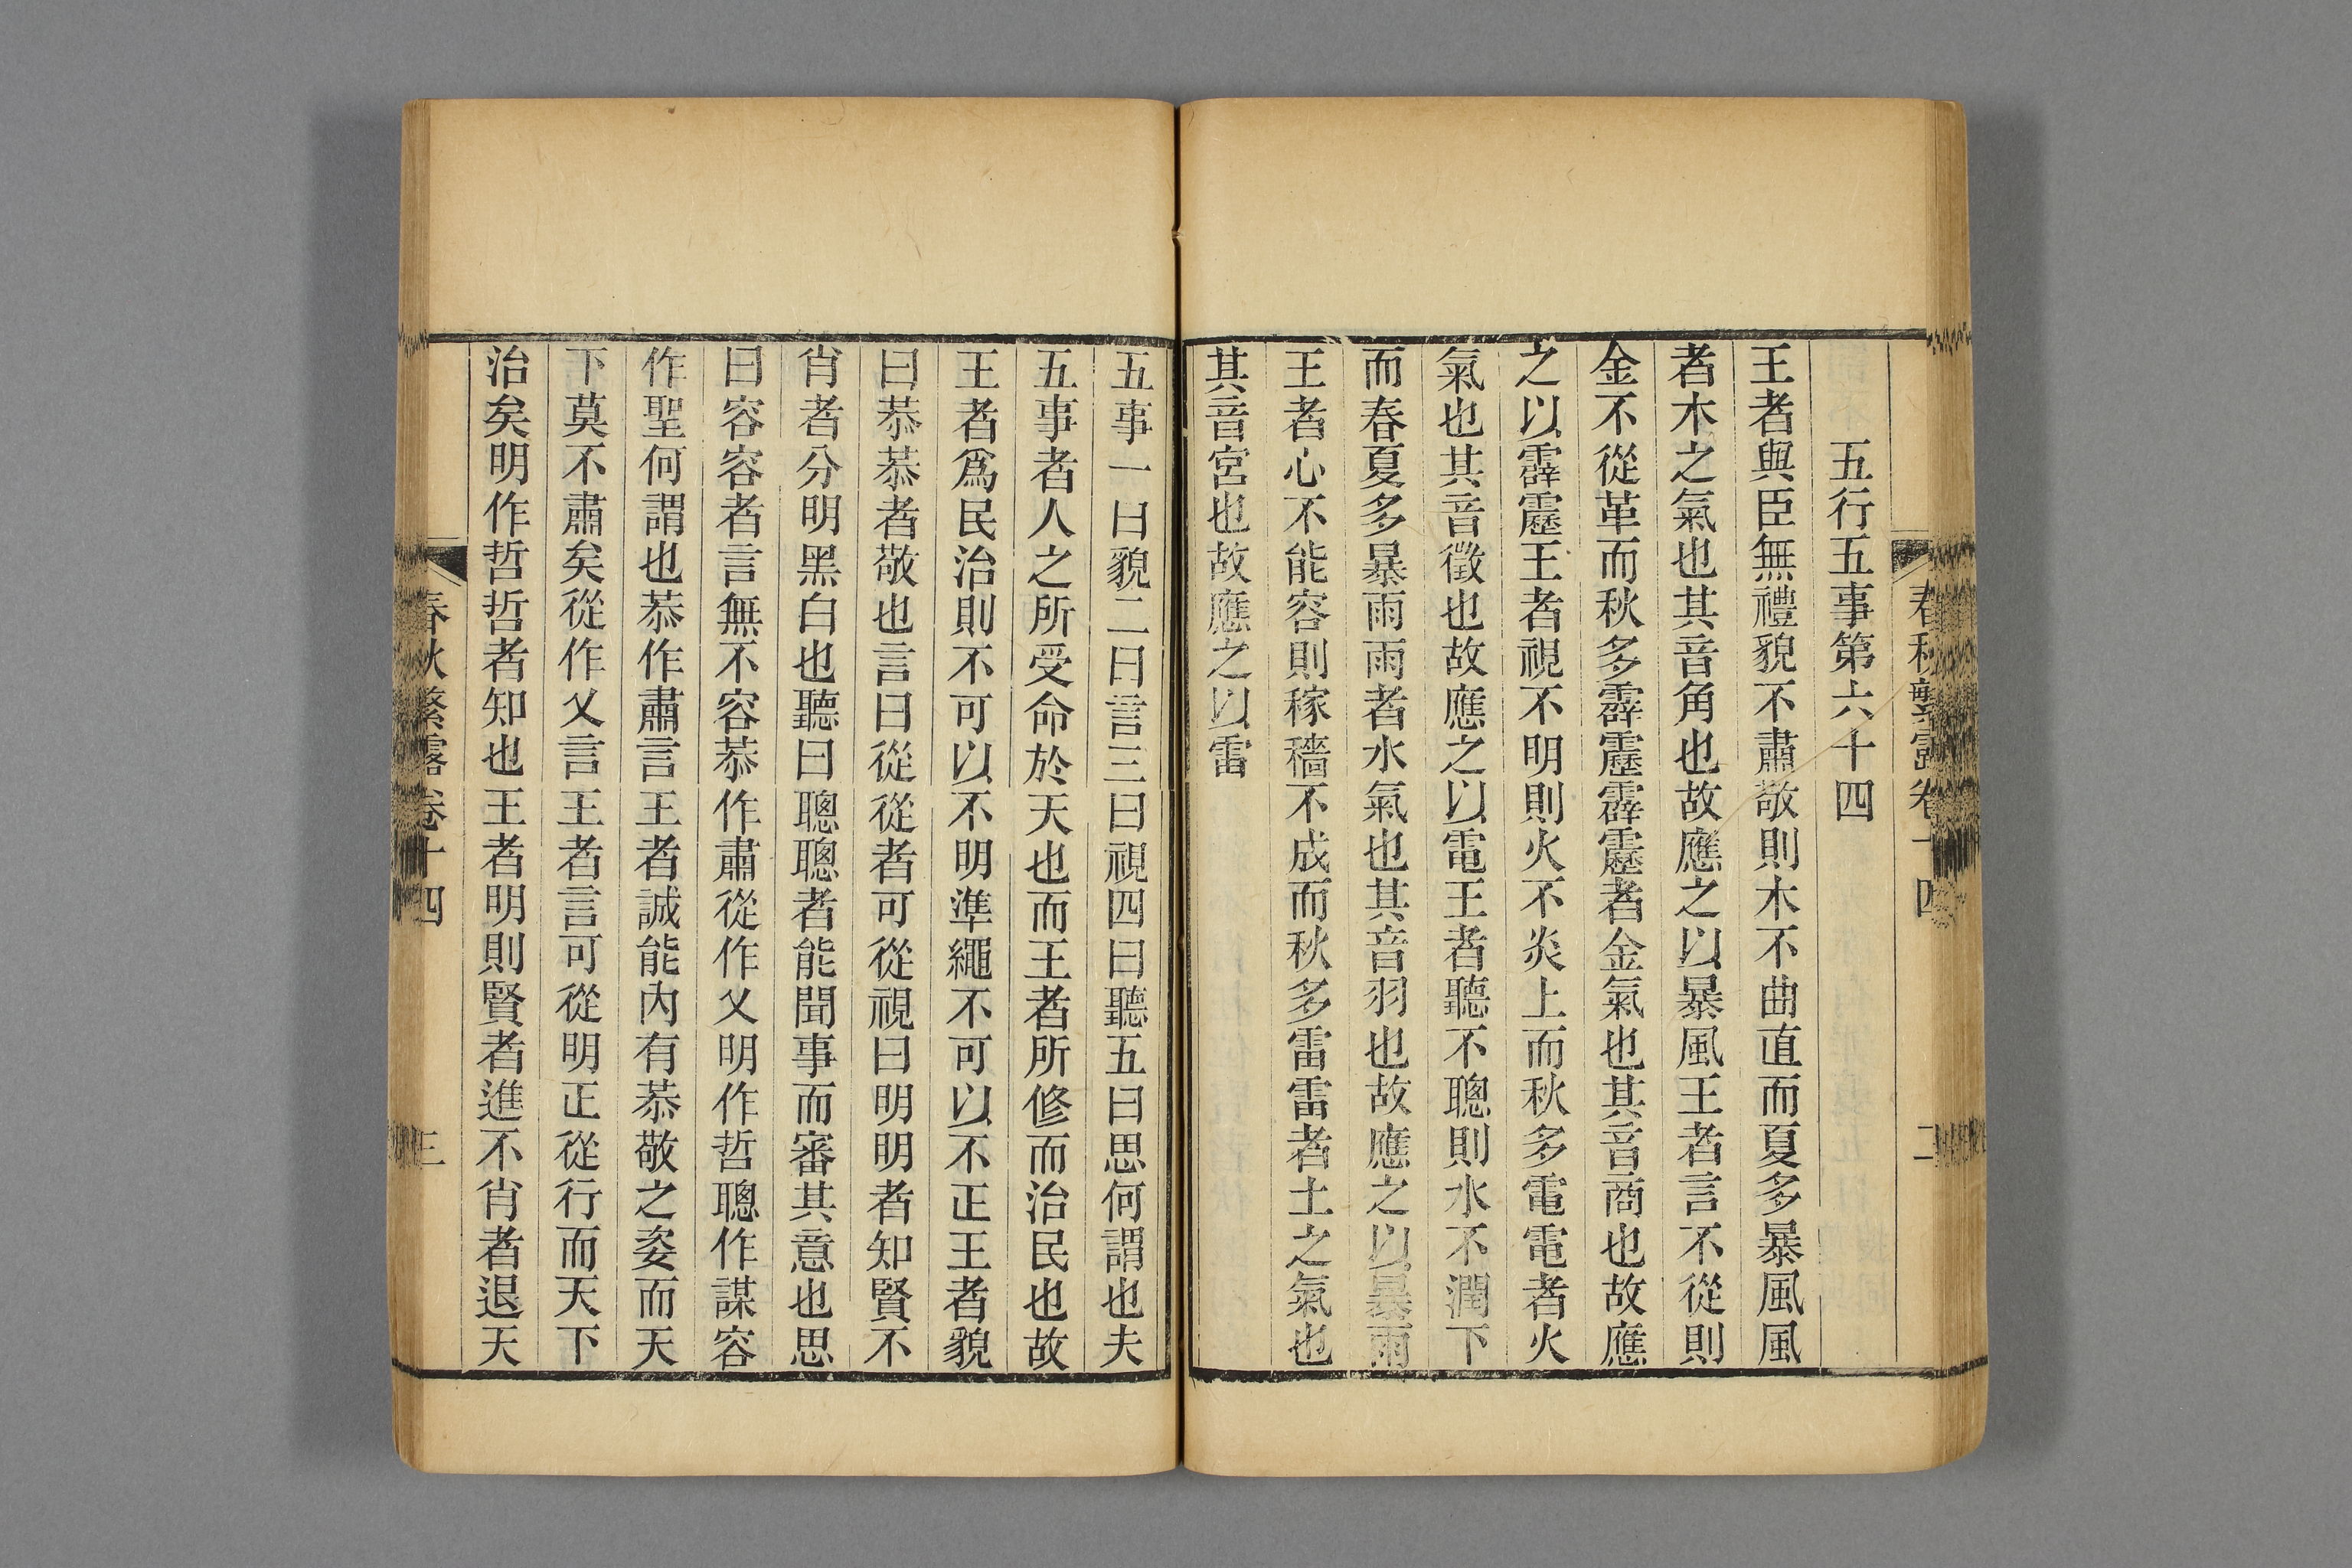 春秋繁露卷十四 二
五行五事第六十四
王者與臣無禮貌不肅敬則木不曲直而夏多暴風風
者木之氣也其音角也故應之以暴風王者言不從則
金不從革而秋多霹靂霹靂者金氣也其音商也故應
之以霹靂王者視不明則火不炎上而秋多電電者火
氣也其音徵也故應之以電王者聽不聰則水不潤下
而春夏多暴雨雨者水氣也其音羽也故應之以暴雨
王者心不能容則稼穡不成而秋多雷雷者土之氣也
其音宮也故應之以雷
五事一曰貌二曰言三曰視四曰聽五曰思何謂也夫
五事者人之所受命於天也而王者所修而治民也故
王者爲民治則不可以不明準繩不可以不正王者貌
曰恭恭者敬也言曰從從者可從視曰明明者知賢不
肖者分明黑白也聽曰聰聰者能聞事而審其意也思
曰容容者言無不容恭作肅從作乂明作哲聰作謀容
作聖何謂也恭作肅言王者誠能內有恭敬之姿而天
下莫不肅矣從作乂言王者言可從明正從行而天下
治矣明作哲哲者知也王者明則賢者進不肖者退天
春秋繁露卷十四 三